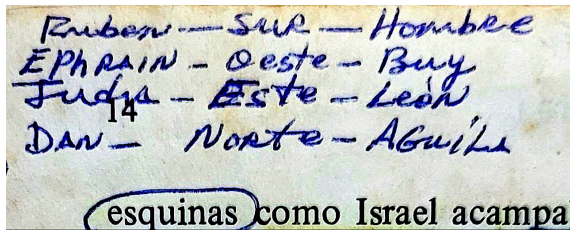 Ruben — Sur — Hombre
EPHRAIN - Oeste - Buy
Juda - Este - León
14
DAN - Norte - AGuiLa
esquinas como Israel acampa